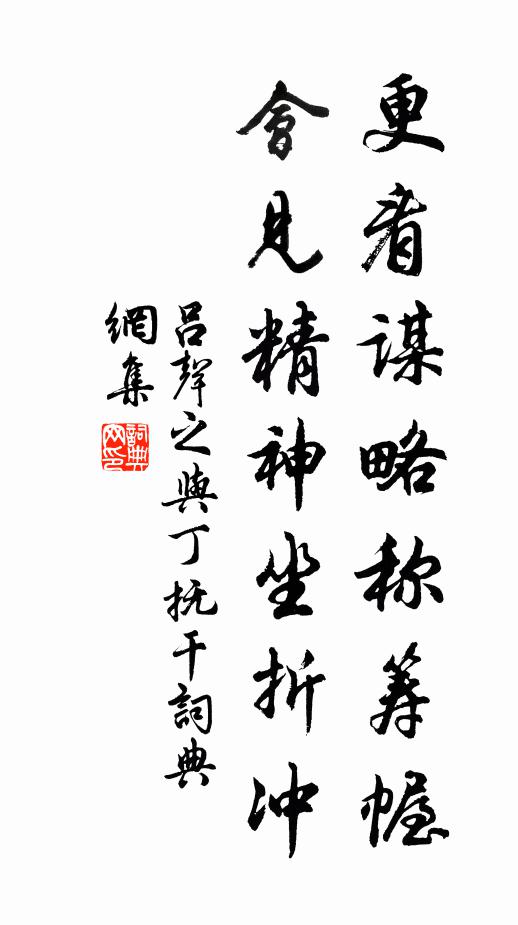 更看谋略称筹幄
会見精神坐折冲
吕聲之與丁抚干詞典
網集
詞典網印